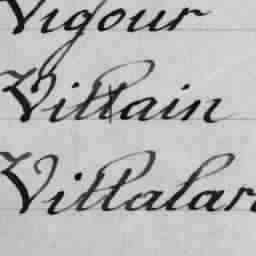 Vigour
Villain
Villalar